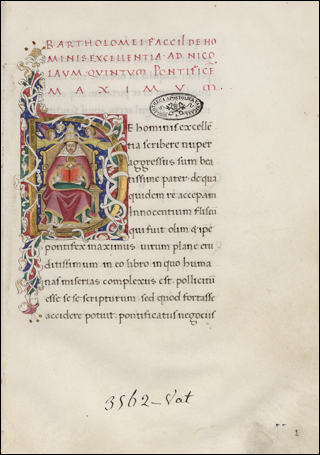 BARTHOLOMEI FACCII DE HO
MINIS EXCELLENTIA AD NICO
LAVM QVINTVM PONTIFICE
MAXIMVM
E hominis excellē
tia scribere nuper
aggressus sum bea
tissime pater de qua
quidem re accepam
Innocentium
qui fuit olim & ipe
pontifex maximus uirum plane eru
ditissimum in eo libro in quo huma
nas miserias complexus est pollicitū
esse se se scripturum sed quod fortasse
accidere potuit pontificatus negocijs
3562-Vat
1